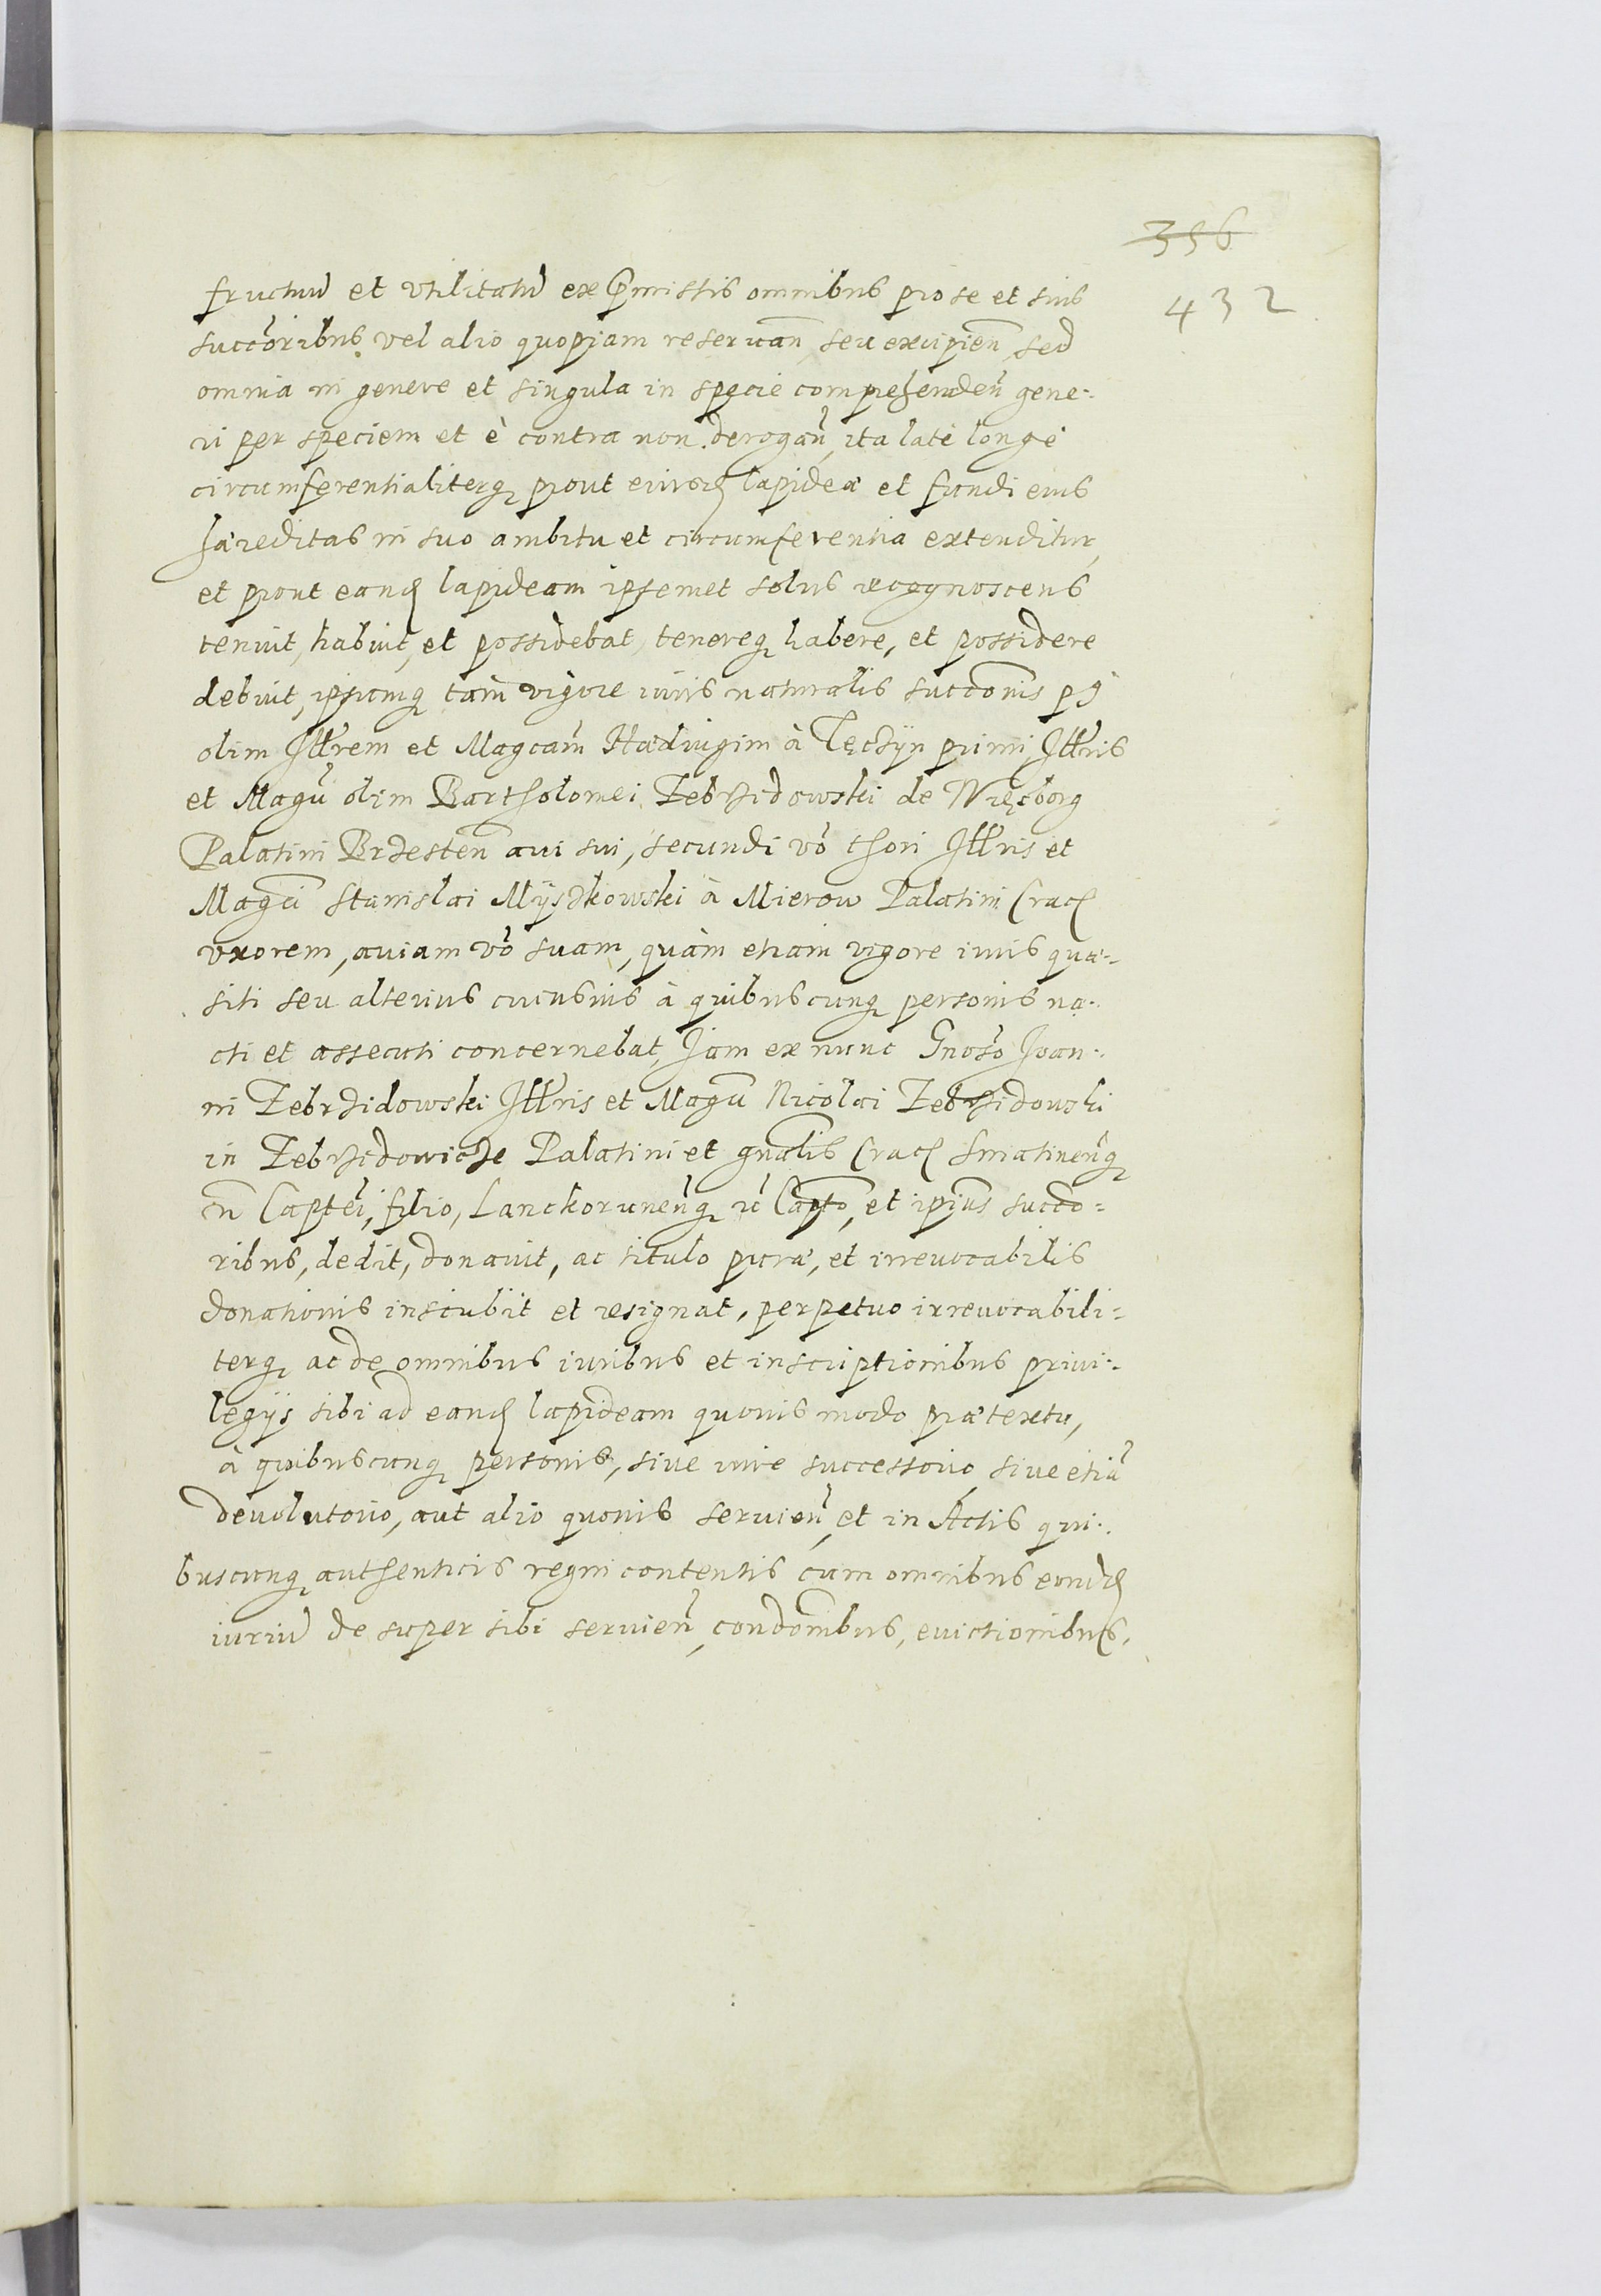 356
432
fructuũ et vtilitatũ ex p̃missis omnibus pro se et suis
succõribus vel alio quopiam reseruañ seu excipieñ, sed
omnia in genere et singula in specie comprehendeñ gene-
ri per speciem et è contra non derogañ, ita latè longè
circumferentialiterq; prout eiusd lapideæ et fundi eius
hæreditas in suo ambitu et circumferentia extenditur,
et prout eand lapideam ipsemet solus recognoscens
tenuit, habuit, et possidebat, tenereq; habere, et possidere
debuit, ipsumq; tam vigore iuris naturalis succonis p9
olim Illrem et Magcam Hedvigim à Tęczyn primi Illris
et Magci olim Bartholomei Zebrzidowski de Więcborg
Palatini Brzesteñ aui sui, secundi vo thori Illris et
Magci Stanislai Myszkowski à Mierow Palatini Crac
vxorem, auiam vo suam, quàm etiam vigore iuris quæ-
siti seu alterius cuiusuis à quibuscunq; personis na-
cti et assecuti concernebat, Jam ex nunc Gnoso Joan-
ni Zebrzidowski Illris et Magci Nicolai Zebrzidowski
in Zebrzidowicze Palatini et gnalis Crac Sniatineñq;
Captei, filio, Lanckoruneñq; rc Capto, et ipius succo-
ribus, dedit, donauit, ac titulo puræ, et irreuocabilis
donationis inscribit et resignat, perpetuo irreuocabili-
terq; ac de omnibus iuribus et inscriptionibus priui-
legijs sibi ad eand lapideam quouis modo prætextu,
à quibuscunq; personis, siue iure successorio, siue etiã
deuolutorio, aut alio quouis seruieñ, et in Actis qui-
buscunq; authenticis regni contentis cum omnibus eorund
iuriũ de super sibi seruieñ, condonibus, euictionibus,